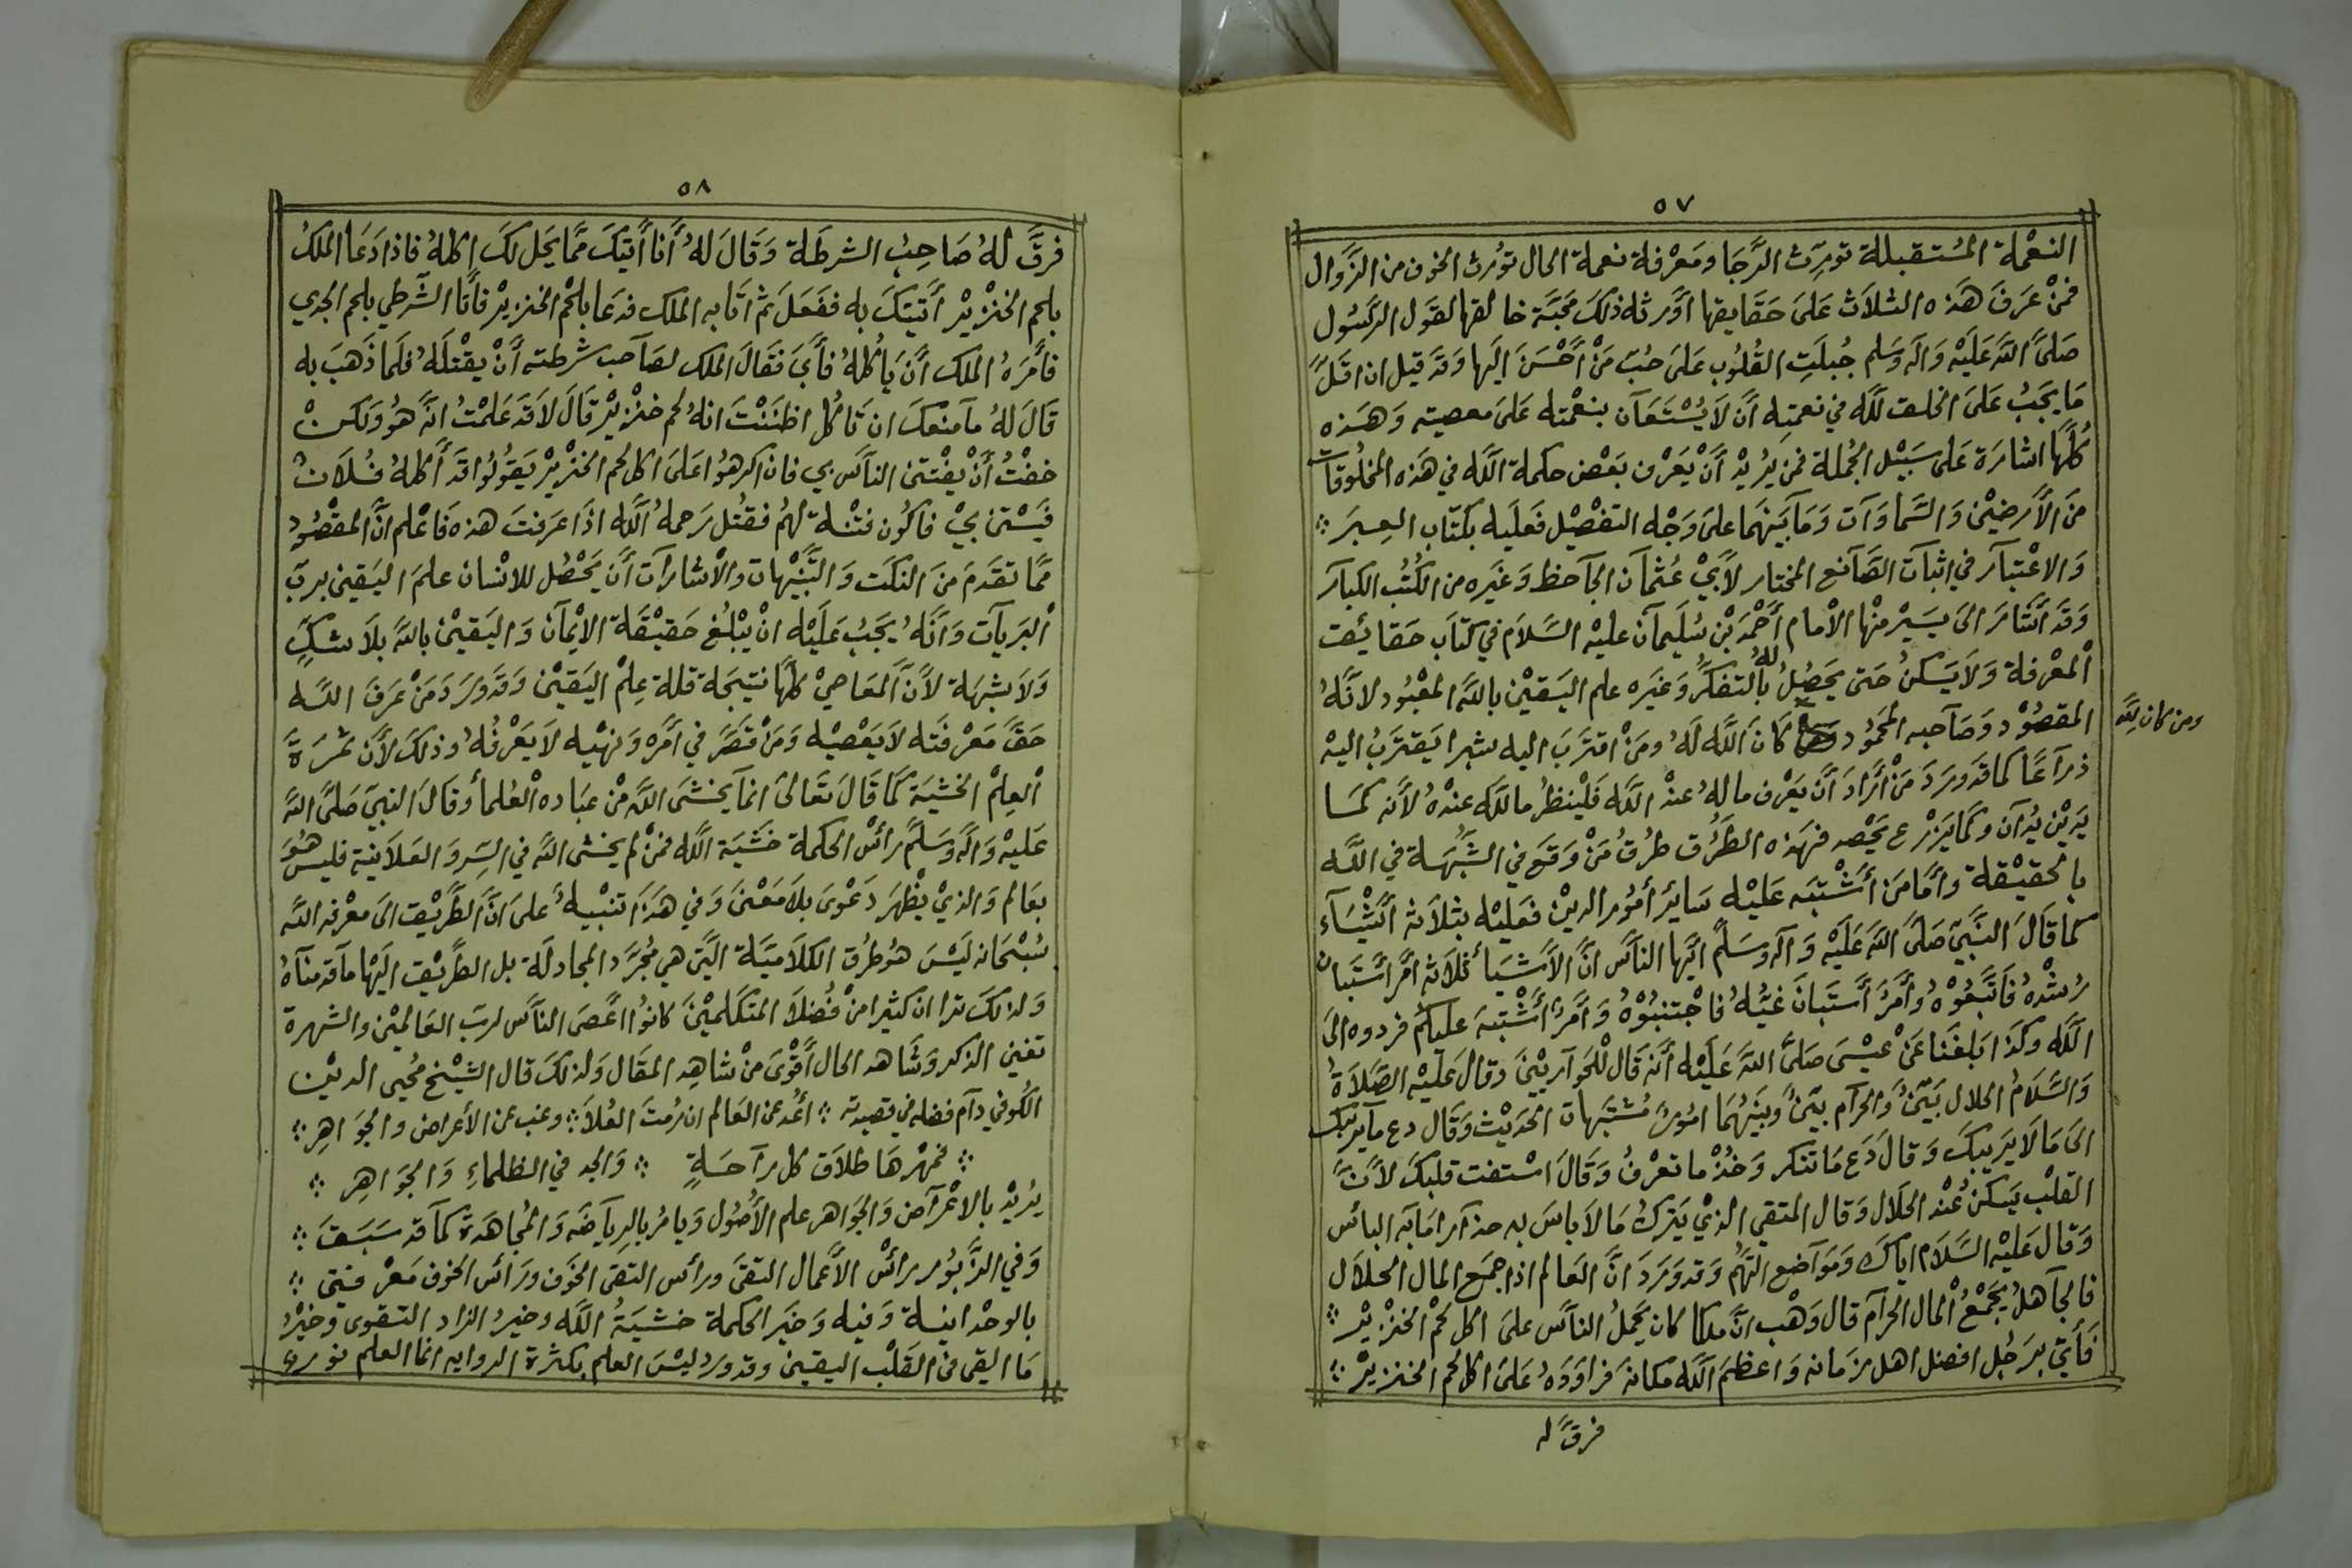 ٥٧
النعْمة المُستقبلة تورِث الرَّجَا ومَعْرفة نعمة الحال تورث الخوف من الزَّوال
فمنْ عَرَفَ هَذه الثلاث عَلىَ حَقَايقها اوَرثه ذلكَ محَبَّة خالقها لقول الرسُول
صَلىَّ اللهُ عَليَْه وَاله وَسَلم جُبلَتِ القُلوُب عَلىَ حُبّ مَنْ أَحْسَنَ اليَها وَقدَ قيل ان اقلَّ
مَا يجَبُ عَلىَ الخلق للّه في نعمَتِه أَن لاَ يُسْتَعَان بنعْمته عَلىَ معصيته وَهَذه
كُلهَّا اشارَة عَلى سَبيْل الجُملة فمن يُريْد أنْ يَعْرف بَعْض حكمة اللَّه في هَذه المخلُوقات
منَ الأَرضيْن وَالسَّماوَات وَمَا بَينهَما علىَ وَجْه التفصْيْل فَعليَه بكتَاب العِبرَ ܀
وَالاعْتبَار في اثباَت الصَّانع المختار لأَبيْ عُثمْاَن الجاَحظ وَغَيَره من الكُتُب الكبارَ
وَقدَ أَشَارَ الىَ يسَيْر منْهاَ الامام أَحْمَدَ بْن سُليَمان عليْه السَّلاَم في كتاَب حَقايئق
اْلمعْرفة وَلاَ يَسَكنُ حَتىَ يَحصُلُ لهُ بالتفكرُّ وَغَيره علم اليَقيْن باللهَّ المعْبُود لانَّهُ
المقصُوْد وَصَآحبه المحَموُد ومن كان للَّه كَانَ اللَّه لَهُ ومَنْ اقترَبَ اليه شبرا يَقترَبُ اليْه
ذرآعًا كما قدَ وَرَدَ مَنْ أَرَادَ أنَّ يَعْرف ما لهُ عنْد اللَّه فليْنظرُ ما للّه عنْدهُ لأنَّه كَمَا
يَديْن يُدَان وكمَا يَزْرع يحَصْد فهَذه الطُرُق طرُقُ مَنْ وَقعَ في الشُّبْهَة في اللَّه
بالحقيْقة وأمَّا مَن أشْتبَه عَليْه سَايرَ أمُور الديْن فعَليْه بثلاَثة اشْيَآء
كما قَالَ النَّبيّ صَلىَّ اللهَ عَليَْه وَآله وسَلم ايَّها الناَّس انَّ الأَشيَا ثلاَثة امْرٌ اسْتَبان
رُشدْهُ فَاتَّبعُوْهُ وأَمْرٌ اسْتَبانَ غيُّهُ فاجْتنبُوْهُ وَأَمْرٌ أشْتبهَ عليكُم فردوه الىَ
اللَّه وكذَا بَلغَنا عَنْ عيْسىَ صَلىَّ اللهَ عَليَْه أنَّه قَال لْلحَوآريْينَ وقالَ عَليْه الصَّلاَةُ
وَالسَّلاَمُ الحلال بَيّنٌ وَالحرآم بيّنٌ وبَينْهُمَا امُورٌ مُشتبَهات الحَديْث وَقال دع مآيريبكَ
الىَ مَا لاَ يرَيبكَ وَقالَ دَع مَا تنكر وَخُذْ ما تعْرفُ وَقَالَ اسْتفت قلبكَ لأَنَّ
القلْب يَسكنُ عْند الحلال وَقال المتقي الذيْ يَترُكُ مَا لاَ بَاسَ به حذآرا مَا به البائس
وَقال عَليْه السَّلاَم اياّكَ وَمَوَآضع التُّهَم وَقد وَرَدَ انَّ العَالم اذا جمَع المال الحلاَل
فالجَآهلُ يجَمْعُ اْلمال الحرآم قال وَهْب انَّ ملكا كان يحَملُ الناَّس علىَ اكل لحَمْ الخنزْيرْ ܀
فَأتيَ برَجُل افضل اهل زمَانه وَاعظمَ اللَّه مكانهَ فرَاوَدَهُ عَلىَ اكل لحم الخنزيْر ܀
ومن كان للَّه
فرقَّ له
٥٨
فرقَّ لهُ صَاحِبُ الشرطَة وَقَالَ لهُ أَنا أَتيَكَ ممَّا يحَل لكَ اكلهُ فاذا دَعَا الملكُ
بلحم الخنْزيْر أَتيَتكَ به ففعَلَ ثم اتَا به الملك فدعَا بلحْم الخنزيْر فأَتا الشَّرطي بلحم الجدي
فأمَرَهُ الملك أنَّ يَأكلهُ فأَبيَ فَقالَ الملك لصَآحب شرطته أَنْ يقْتلَهُ فلمَا ذَهَبَ به
قَالَ لهُ مآمنعكَ ان تَأكُل اظنَنْتَ انهُ لحم خنْزيْر قَالَ لاَ قدَ عَلمْتُ انَّه هُوُ وَلكَنْ
خفْتُ أَنْ يفْتتنَ الناَّس بي فان اكرهوُا علىَ اكل لحم الخنزيْر يَقوُلوُا قدَ أكلهُ فُلاَنٌ
فيَسْتن بيْ فاكُون فتنة لهُم فقتُل رَحمهُ اللَّه اذا عرَفتَ هذه فَاعْلم انَّ المقْصُوْد
ممَّا تقدَمَ منَ النكَت وَالتَّنبْيْهات والاشاراَت أنَ يَحصُل للانسْان علمَ اليَقين برَبّ
اْلبرَيآت وَأَنهَُ يجَبُ عَليَْه انْ يَبْلغُ حَقيْقَة الايْمآن وَاليَقيْن باللهَّ بلاَ شكٍّ
وَلاَ شبهَة لاَنَّ اْلمعَاصيْ كلهَّا نتيجَة قلة عِلمْ اليَقيْن وَقد وَرَدَ مَنْ عَرَفَ اللَّه
حَقَّ مَعْرفتَه لاَ يَعْصيْه وَمَنْ قصَرَّ في أَمْره وَنهيْه لاَ يَعْرفهُ وذلكَ لأَنَّ ثمَرَةَ
اْلعِلمْ الخشيَة كمَا قَالَ تعَالىَ انمآ يخشىَ اللَّه منْ عبَاده اْلعُلمأ وقالَ النبيّ صَلىَّ اللهَّ
عَليْه وَالَه وَسَلمَّ رائسْ الحكمة خَشَيَة اللَّه فمنْ لم يخشى اللهَّ في السِّر وَالعَلاَنية فليسَ هُوَ
بعَالم وَالذيْ يظْهَر دَعْوىَ بلاَ مَعْنىَ وَفي هَذَا تنبْيهٌ علىَ انَّ الطَّريْق الىَ معْرفه اللهَّ
سُبْحَانه ليْسَ هوُ طرُق الكلاَميَّة الَّتي هي مُجرَّد المجادلَة بل الطَّريْق اليَها مآقدمنآهُ
وَلذلكَ ترا ان كثيْرا منْ فُضلاَ المتكلّميْنَ كانوُا اعْصىَ الناَّس لرَبّ العَالميْن والشهرة
تغني الذكر وَشاهد الحال أَقوْىَ منْ شاهِد المقَال وَلذلكَ قال الشيْخ مُحيي الديْن
الكُوفي دآم فضله في قصيدته ܀ اعُد عن العَالم ان رُمتَ العُلاَ܀ وغب عن الأعراض والجوَاهِر ܀
܀ فمهْرهَا طلاَق كل رآحَةٍ ܀ وَالجد في الظلماءِ وَالجوَاهِر ܀
يُريْدْ بالاعْرآض وَالجوَاهر علم الأُصُول وَيامرُ بالرِيآضَه وَالمجُاهَدَة كمآ قد سَبَقَ ܀
وَفي الزَّبوُر رائسْ الأَعْمال التقىَ ورأس التقى الخوَف ورَائس الخوف مَعْرفتي ܀
بالوحْدانية وَفيه وَخَير الحكمة خشيَةُ اللَّه وخيرُ الزاد التقوى وخيْرُ
مَا القي في القَلْب اليقين وقد ورد ليْسَ العلم بكثرة الروايه انما العلم نورٌ